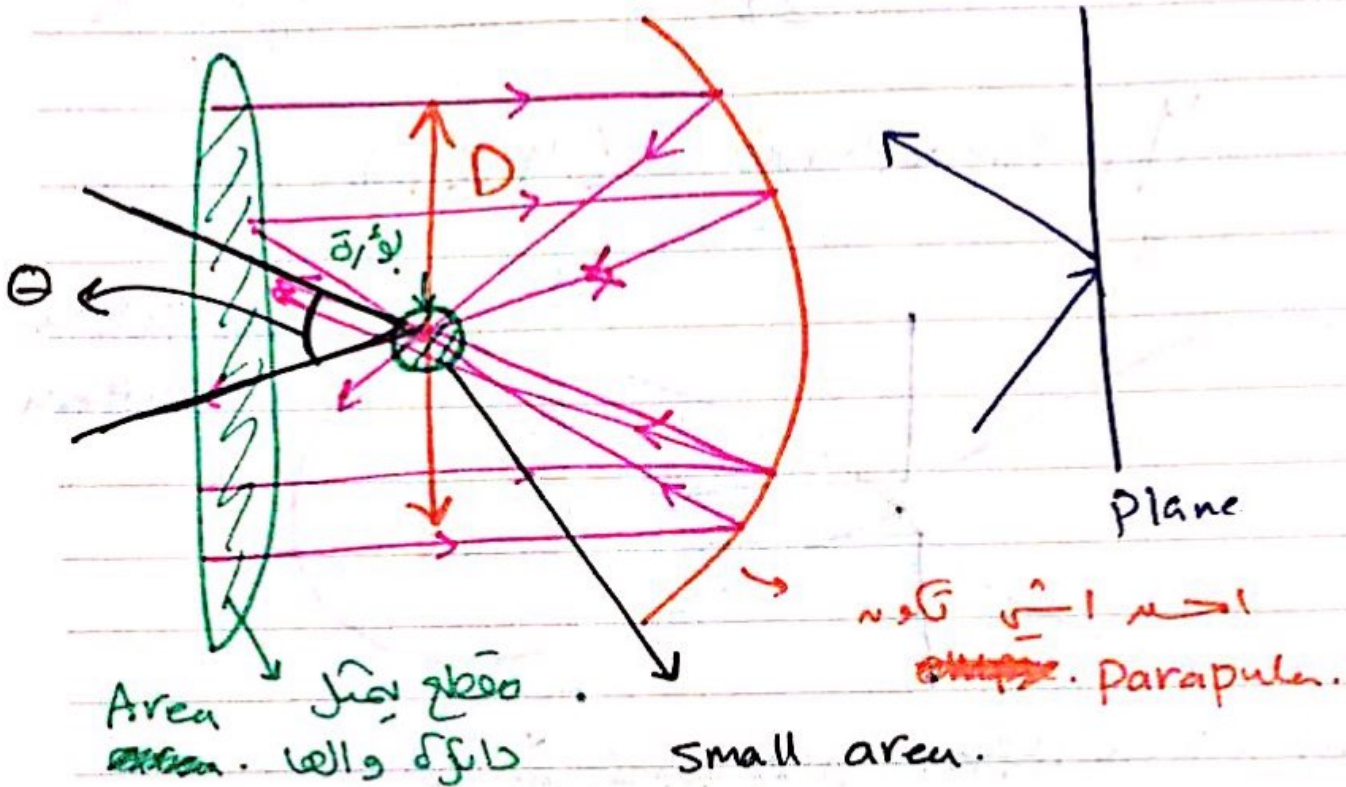 D
بؤرة
Θ
plane
احسن اشي تكون
parapula.
Area مقطع يمثل
دائرة والها
small area.